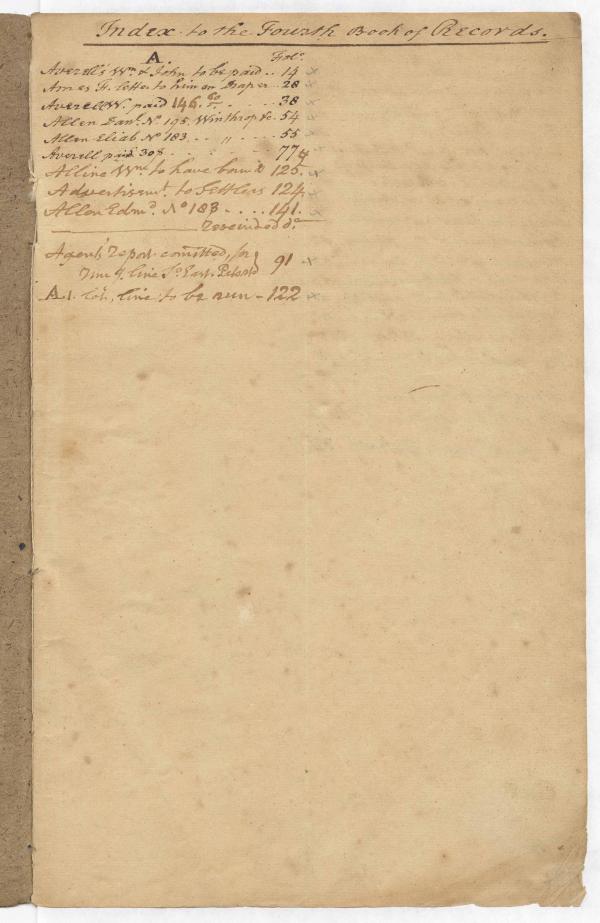 Index to the Fourth Book of Records.
A. Fol:
Averell's Wm. & John to be paid .. 14 x
Ames F. letter to him on Draper .. 28 x
Averell W. paid 146. 60 . . . . 38 x
Allen Danl. No. 195. Winthrop &c. 54 x
Allen Eliab No 183 . . „ . . . 55 x
Averell paid 308 . . . . . 77
Alline Wm. to have 125. x
Advertisemt. to Settlers 124. x
Allen Edmd. No 183 . . . . 141. x
rescinded do.
Agents' Report comitted, for
running line So. East 91 x
A. 1. line to be run - 122 x